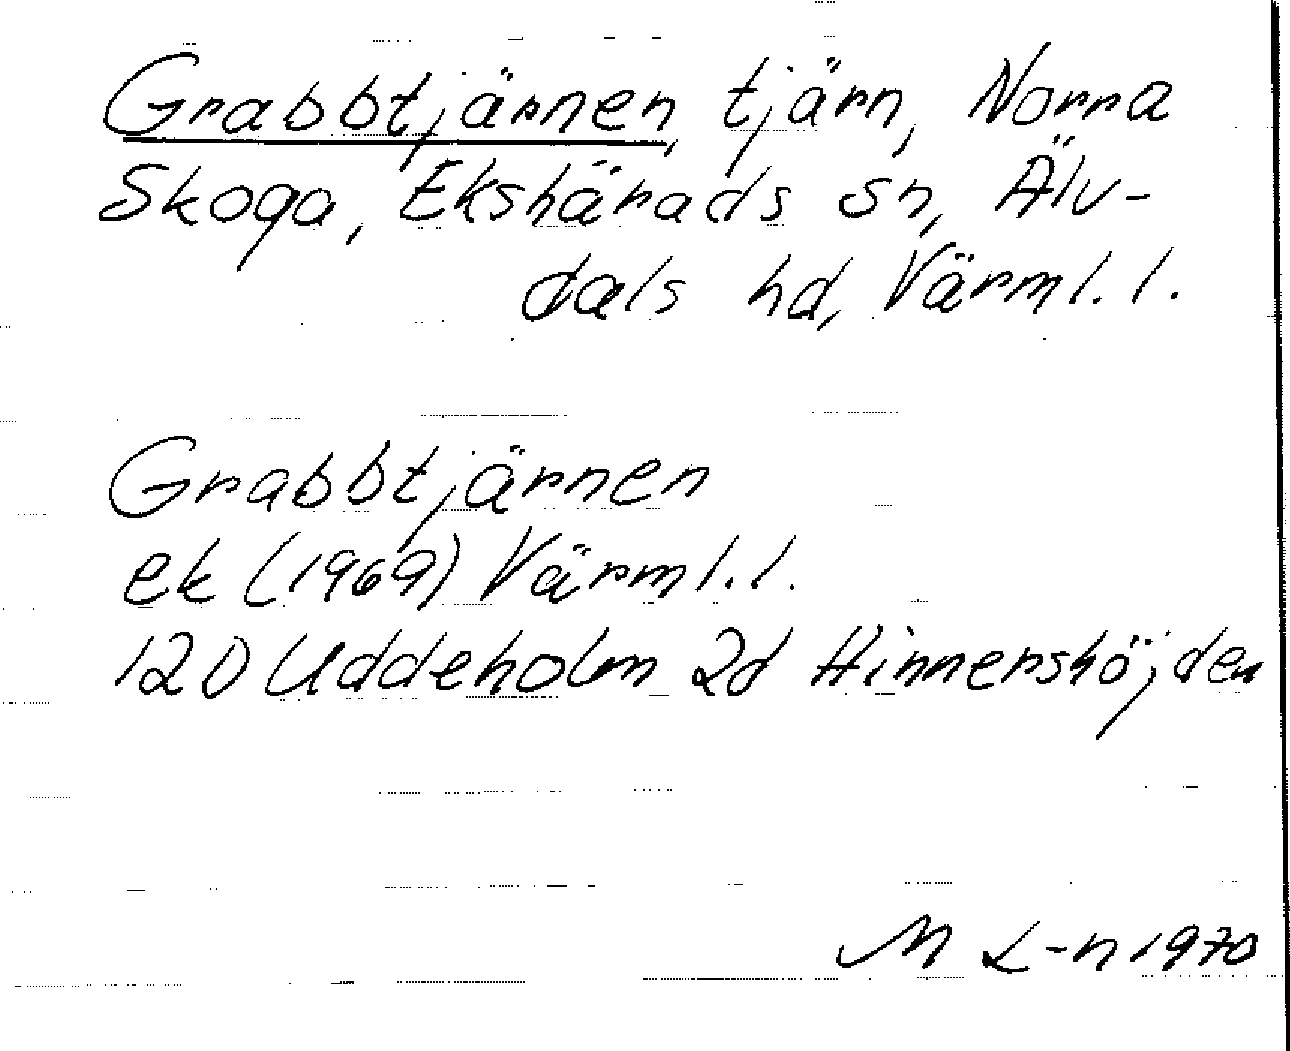 Grabbtjärnen, tjärn, Norra
Skoga, Ekshärads sn, Älv-
dals hd, Värml. l.
Grabbtjärnen
ek (1969) Värml. l.
12D Uddeholm 2d Hinnershöjden
M L-n 1970